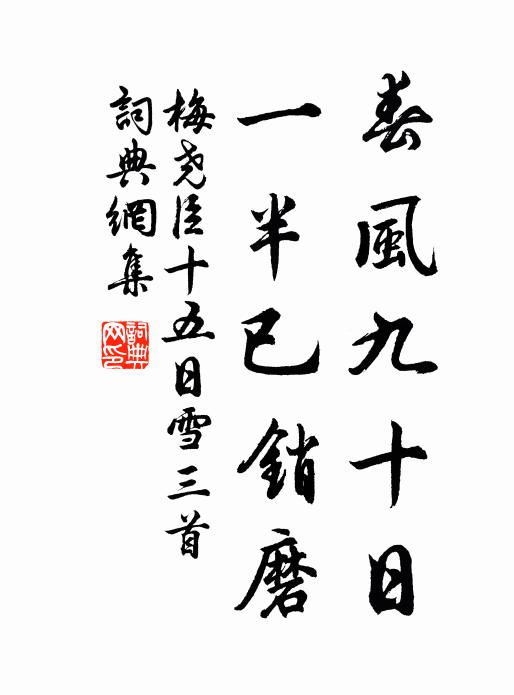 春風九十日
一半已銷磨
梅堯臣十五日雪三首
詞典網集
詞典網印